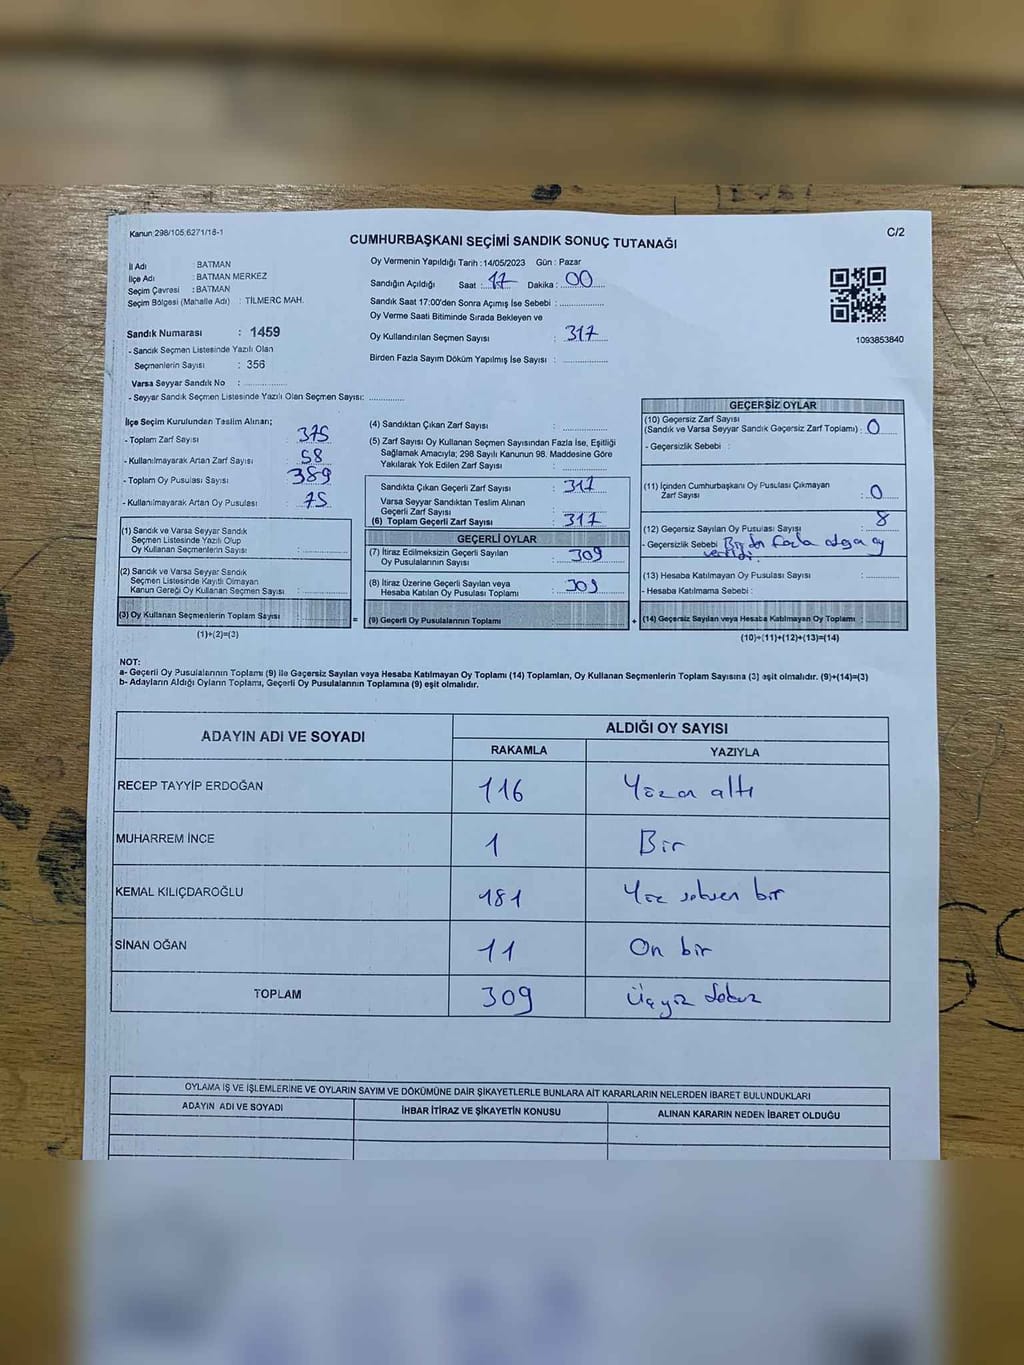 Kanun:298/105;6271/18-1
C/2
CUMHURBAŞKANI SEÇİMİ SANDIK SONUÇ TUTANAĞI
İl Adı : BATMAN
İlçe Adı : BATMAN MERKEZ
Seçim Çevresi : BATMAN
Seçim Bölgesi (Mahalle Adı) : TİLMERC MAH.
Sandık Numarası : 1459
- Sandık Seçmen Listesinde Yazılı Olan
Seçmenlerin Sayısı : 356
Varsa Seyyar Sandık No : ..............
- Seyyar Sandık Seçmen Listesinde Yazılı Olan Seçmen Sayısı: ..............
Oy Vermenin Yapıldığı Tarih : 14/05/2023 Gün : Pazar
Sandığın Açıldığı Saat : 17 Dakika : 00
Sandık Saat 17:00'den Sonra Açımış İse Sebebi : ..............
Oy Verme Saati Bitiminde Sırada Bekleyen ve
Oy Kullandırılan Seçmen Sayısı : 317
Birden Fazla Sayım Döküm Yapılmış İse Sayısı : ..............
1093853840
İlçe Seçim Kurulundan Teslim Alınan;
- Toplam Zarf Sayısı : 375
- Kullanılmayarak Artan Zarf Sayısı : 58
- Toplam Oy Pusulası Sayısı : 389
- Kullanılmayarak Artan Oy Pusulası : 75
(1) Sandık ve Varsa Seyyar Sandık
Seçmen Listesinde Yazılı Olup
Oy Kullanan Seçmenlerin Sayısı : ..............
(2) Sandık ve Varsa Seyyar Sandık
Seçmen Listesinde Kayıtlı Olmayan
Kanun Gereği Oy Kullanan Seçmen Sayısı : ..............
(3) Oy Kullanan Seçmenlerin Toplam Sayısı : ..............
(1)+(2)=(3)
(4) Sandıktan Çıkan Zarf Sayısı : ..............
(5) Zarf Sayısı Oy Kullanan Seçmen Sayısından Fazla İse, Eşitliği
Sağlamak Amacıyla; 298 Sayılı Kanunun 98. Maddesine Göre
Yakılarak Yok Edilen Zarf Sayısı : ..............
Sandıkta Çıkan Geçerli Zarf Sayısı : 317
Varsa Seyyar Sandıktan Teslim Alınan
Geçerli Zarf Sayısı : ..............
(6) Toplam Geçerli Zarf Sayısı : 317
GEÇERLİ OYLAR
(7) İtiraz Edilmeksizin Geçerli Sayılan
Oy Pusulalarının Sayısı : 309
(8) İtiraz Üzerine Geçerli Sayılan veya
Hesaba Katılan Oy Pusulası Toplamı : 309
= (9) Geçerli Oy Pusulalarının Toplamı : ..............
GEÇERSİZ OYLAR
(10) Geçersiz Zarf Sayısı
(Sandık ve Varsa Seyyar Sandık Geçersiz Zarf Toplamı) : 0
- Geçersizlik Sebebi :
(11) İçinden Cumhurbaşkanı Oy Pusulası Çıkmayan
Zarf Sayısı : 0
(12) Geçersiz Sayılan Oy Pusulası Sayısı : 8
- Geçersizlik Sebebi : Birden fazla adaya oy
verildi.
(13) Hesaba Katılmayan Oy Pusulası Sayısı : ..............
- Hesaba Katılmama Sebebi :
+ (14) Geçersiz Sayılan veya Hesaba Katılmayan Oy Toplamı : ..............
(10)+(11)+(12)+(13)=(14)
NOT:
a- Geçerli Oy Pusulalarının Toplamı (9) ile Geçersiz Sayılan veya Hesaba Katılmayan Oy Toplamı (14) Toplamları, Oy Kullanan Seçmenlerin Toplam Sayısına (3) eşit olmalıdır. (9)+(14)=(3)
b- Adayların Aldığı Oyların Toplamı, Geçerli Oy Pusulalarının Toplamına (9) eşit olmalıdır.
ADAYIN ADI VE SOYADI ALDIĞI OY SAYISI
RAKAMLA YAZIYLA
RECEP TAYYİP ERDOĞAN 116 Yüzon altı
MUHARREM İNCE 1 Bir
KEMAL KILIÇDAROĞLU 181 Yüz seksen bir
SİNAN OĞAN 11 On bir
TOPLAM 309 Üçyüz dokuz
OYLAMA İŞ VE İŞLEMLERİNE VE OYLARIN SAYIM VE DÖKÜMÜNE DAİR ŞİKAYETLERLE BUNLARA AİT KARARLARIN NELERDEN İBARET BULUNDUKLARI
ADAYIN ADI VE SOYADI İHBAR İTİRAZ VE ŞİKAYETİN KONUSU ALINAN KARARIN NEDEN İBARET OLDUĞU